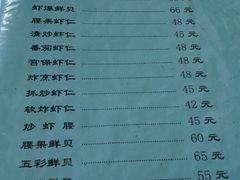 虾爆鲜贝 66 元
腰果虾仁 48 元
清炒虾仁 45 元
番茄虾仁 48 元
宫保虾仁 48 元
炸烹虾仁 48 元
抓炒虾仁 45 元
软炸虾仁 42 元
炒虾腰 45 元
腰果鲜贝 60 元
五彩鲜贝 65 元
鲜贝 55 元